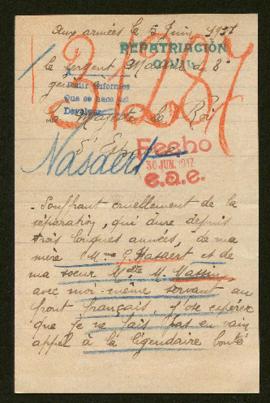 Aux armées le 5 Juin 1917
REPATRIACIÓN
CIVIL
le Sergent
Pedir informes
Que se hace del
Sa Majesté le Roi
Fecho
30 JUN. 1917
e.a.e.
Nasaert
Souffrant cruellement de la
séparation, qui dure depuis
trois longues années, de ma
mère Mme Hasaert et de
ma soeur Melle M.
avec moi-même servant au
front français, j'ose espérer
que je ne fais pas en vain
appel à la légendaire bonté